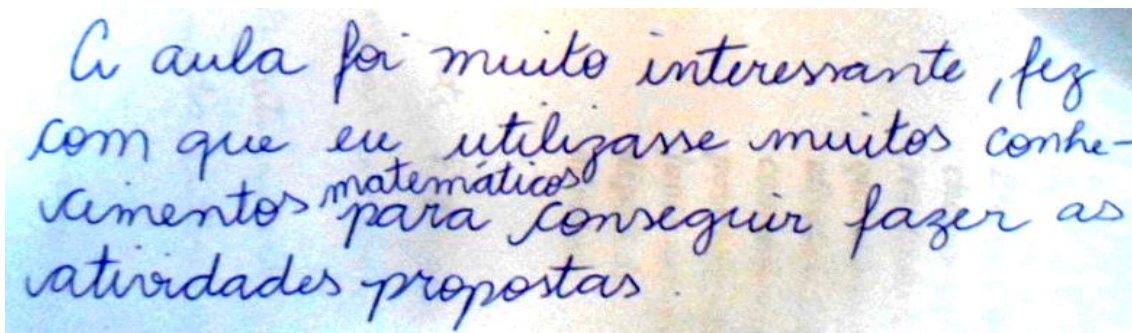 A aula foi muito interessante, fez
com que eu utilizasse muitos conhe-
cimentos matemáticos para conseguir fazer as
atividades propostas.